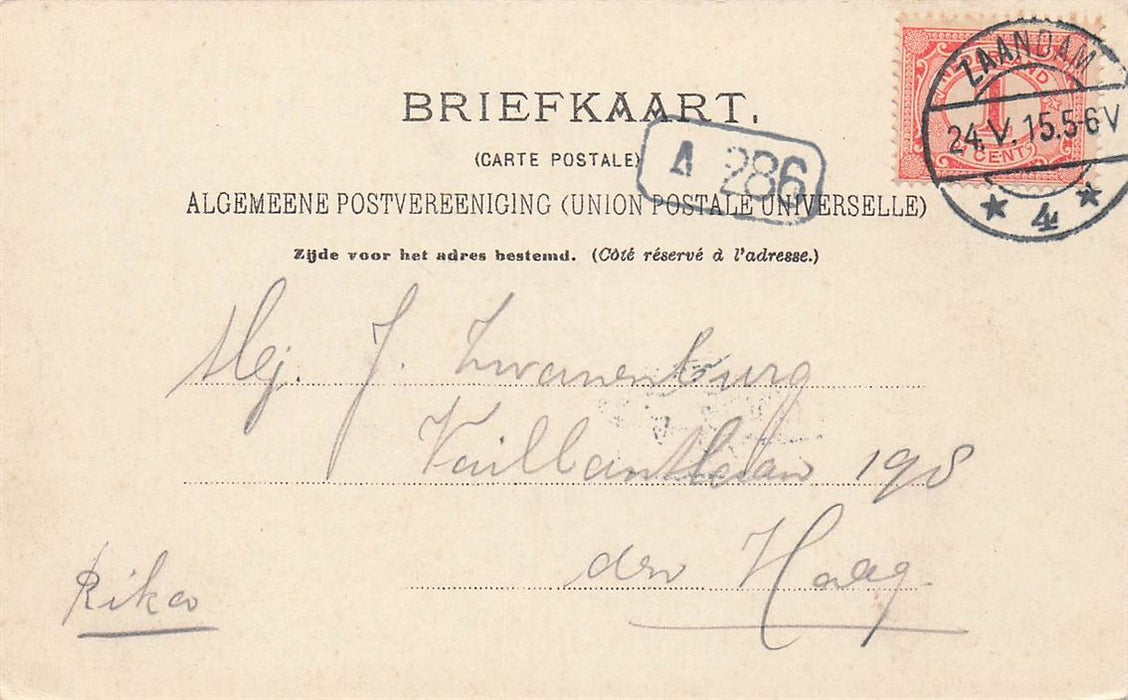 BRIEFKAART.
(CARTE POSTALE)
ALGEMEENE POSTVEREENIGING (UNION POSTALE UNIVERSELLE)
Zijde voor het adres bestemd. (Côté réservé à l'adresse.)
NEDERLAND
1
CENT
ZAANDAM
24.V.15.5-6V
4
A 286
Mej. J. Zwanenburg
Vaillantlaan 198
den Haag
Rika